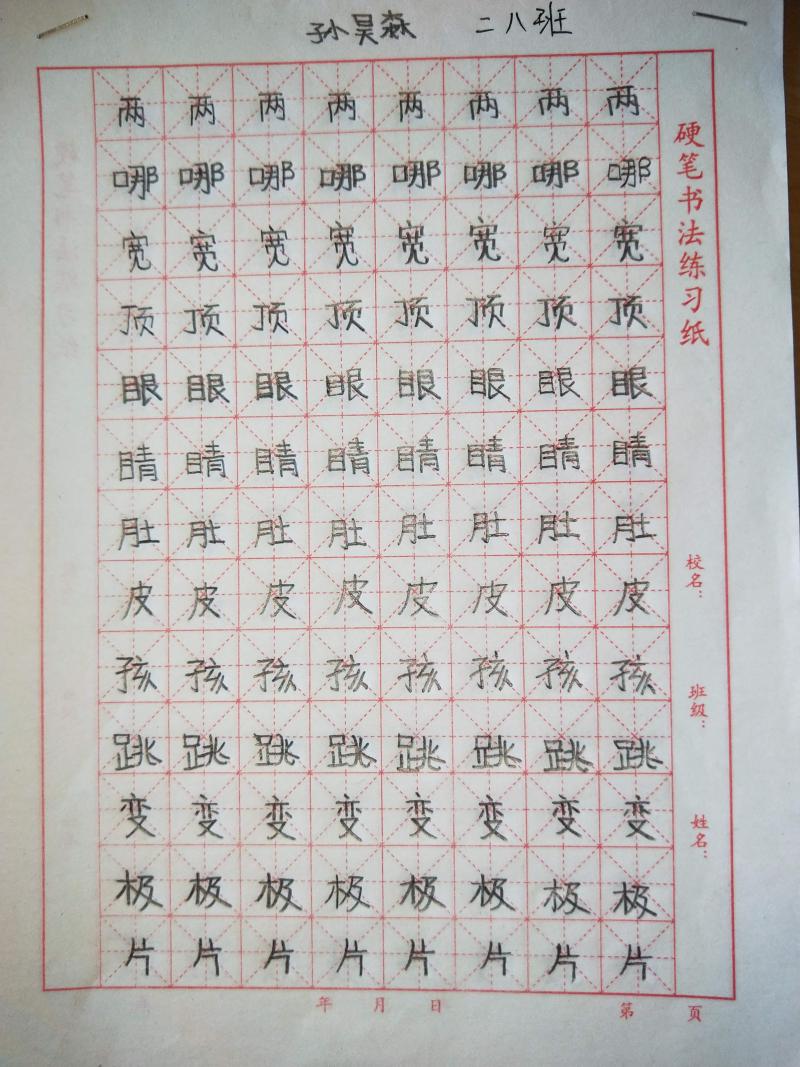 孙昊淼 二八班
两两两两两两两两
哪哪哪哪哪哪哪哪
宽宽宽宽宽宽宽宽
顶顶顶顶顶顶顶顶
眼眼眼眼眼眼眼眼
睛睛睛睛睛睛睛睛
肚肚肚肚肚肚肚肚
皮皮皮皮皮皮皮皮
孩孩孩孩孩孩孩孩
跳跳跳跳跳跳跳跳
变变变变变变变变
极极极极极极极极
片片片片片片片片
硬笔书法练习纸
校名：
班级：
姓名：
年 月 日
第 页